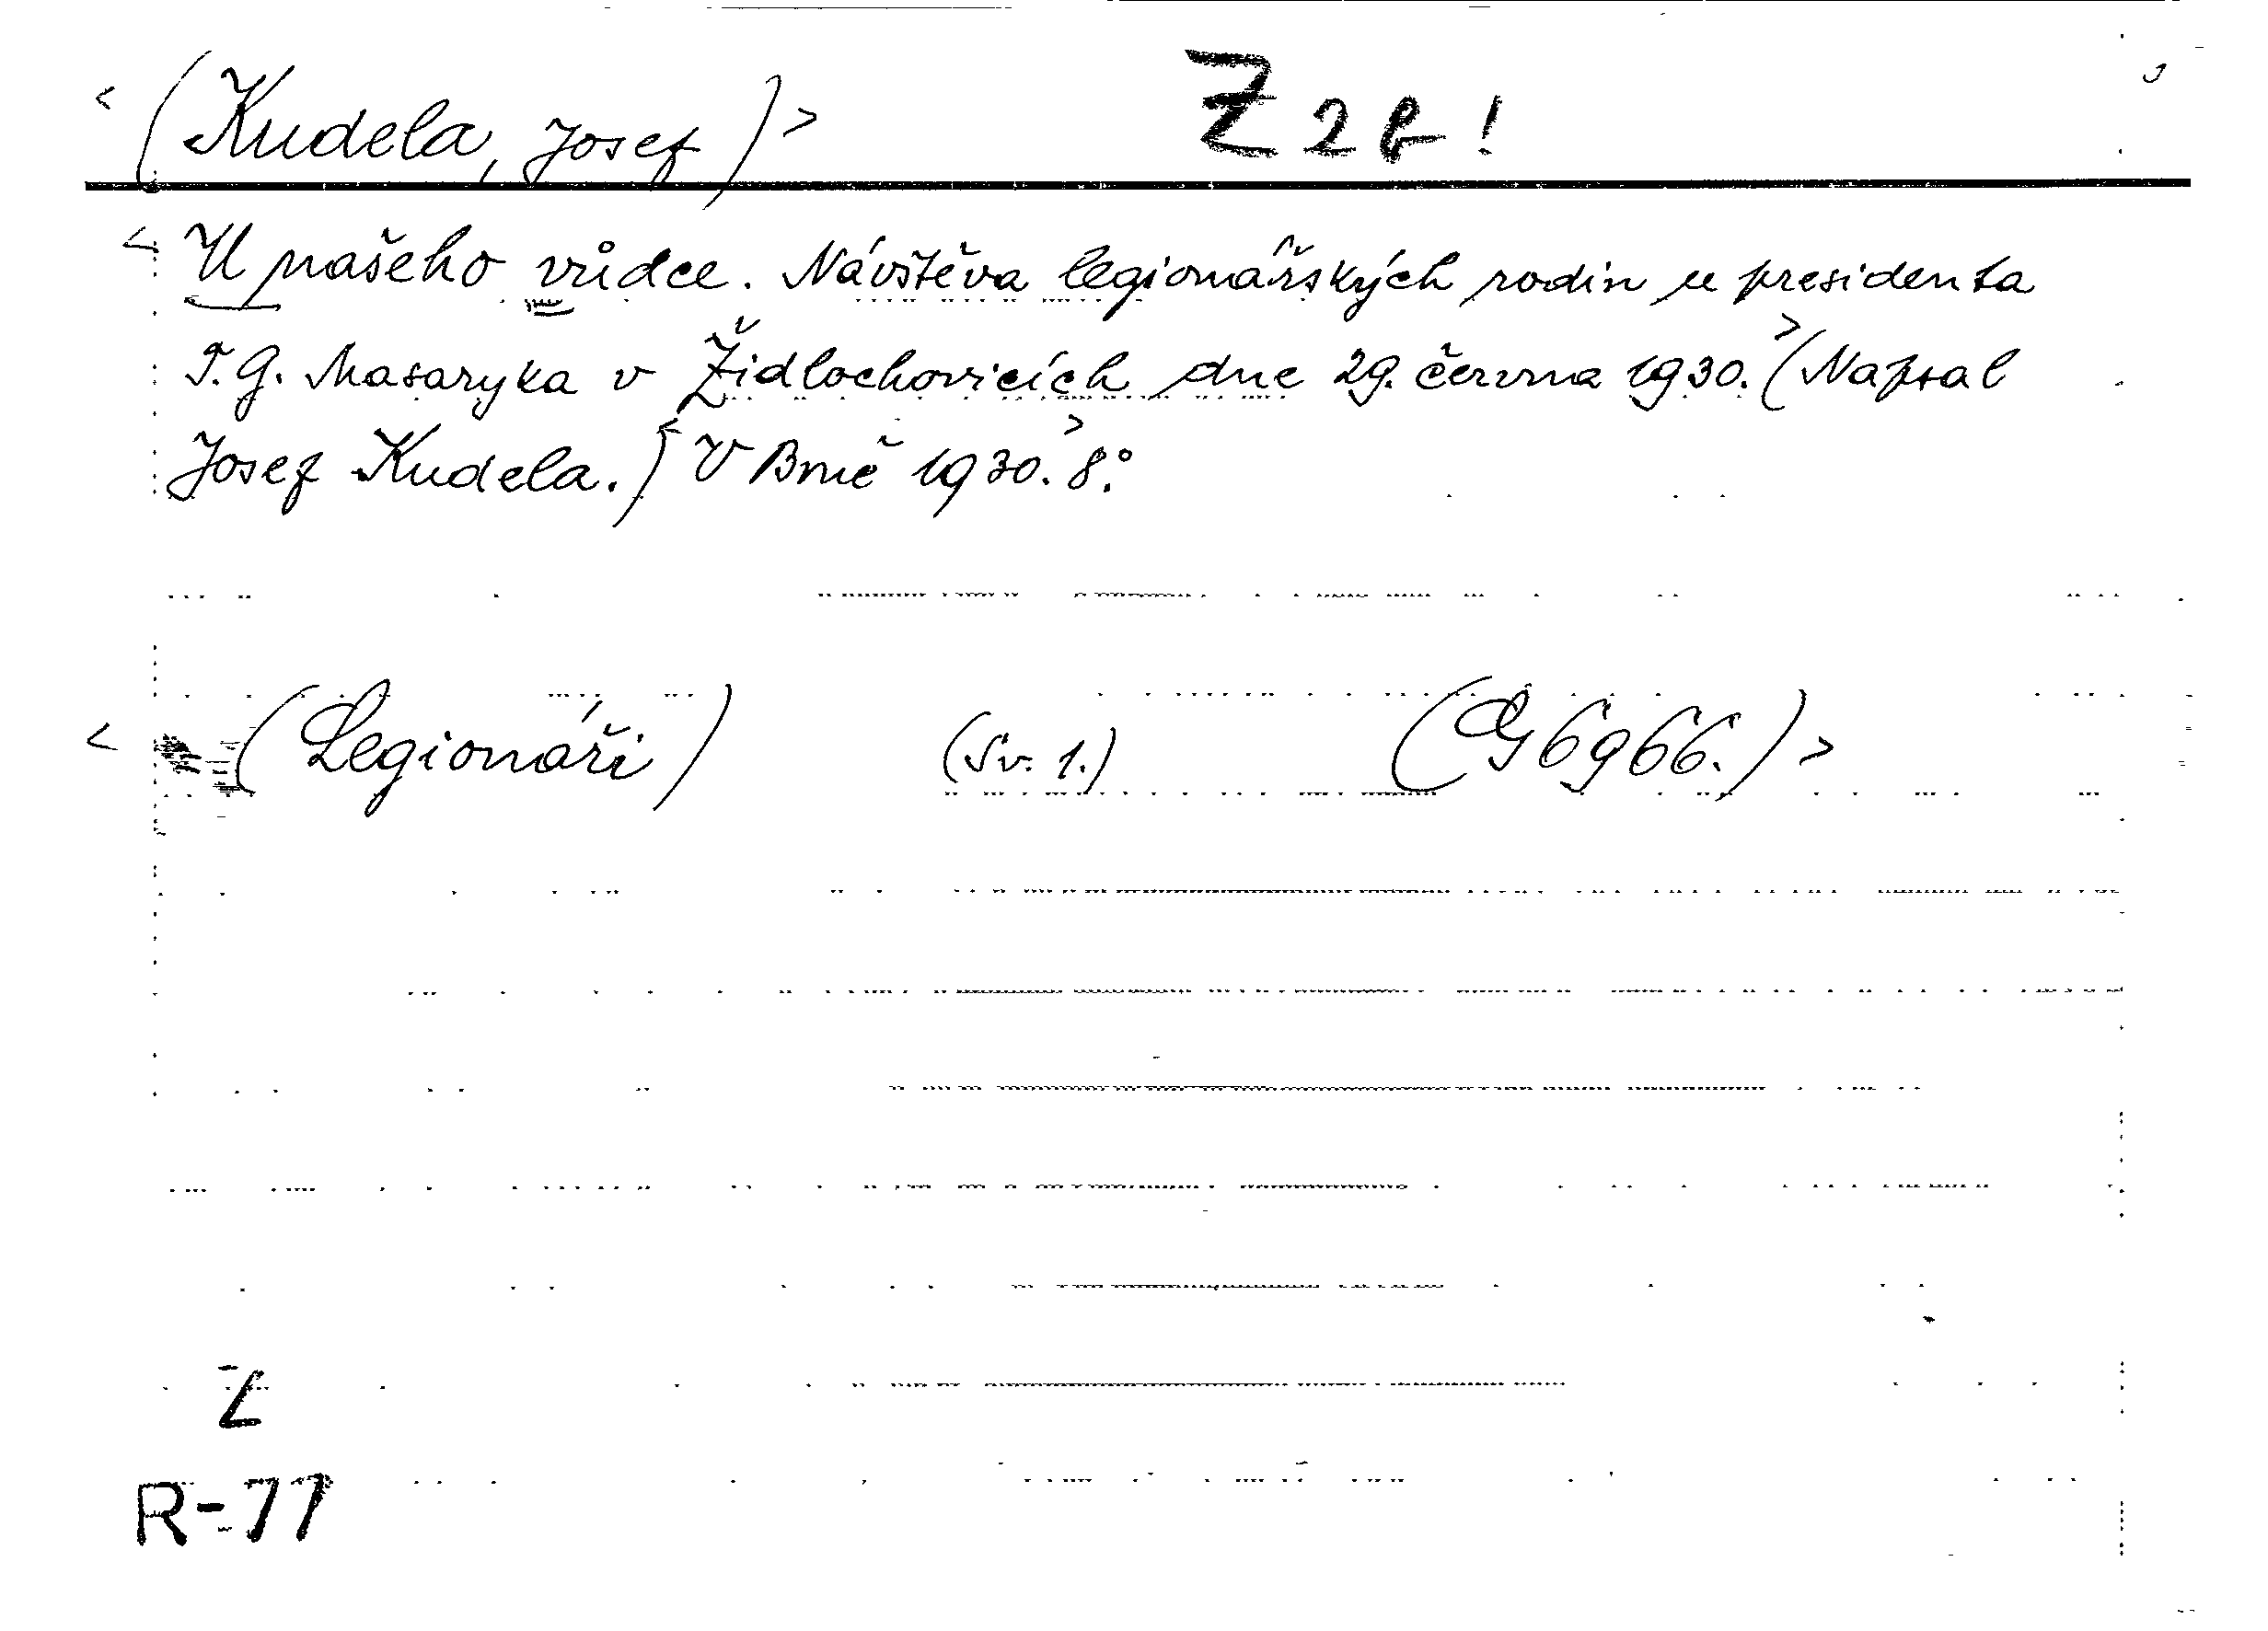 <(Kudela, Josef)> Z 2 f !
<U našeho vůdce. Návštěva legionářských rodin u presidenta
T. G. Masaryka v Židlochovicích dne 29. června 1930.> (Napsal
Josef Kudela.) <V Brně 1930.> 8°.
<(Legionáři) (Sv. 1.) (G 6966.)>
Z
R-77